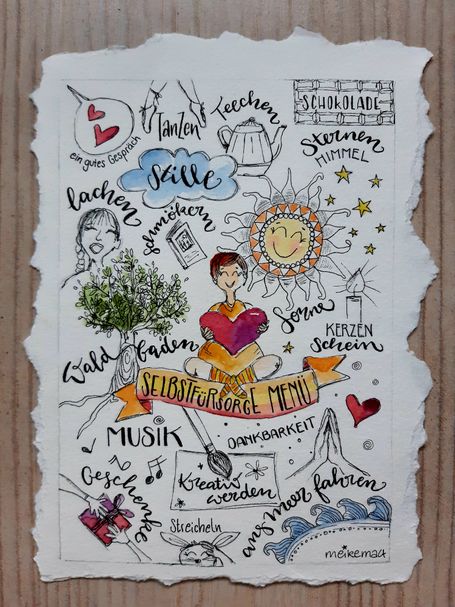 ein gutes Gespräch
Tanzen
Teechen
SCHOKOLADE
Sternen
HIMMEL
Stille
lachen
schmökern
Sonne
KERZEN
Schein
Wald baden
SELBSTFÜRSORGE MENÜ
MUSIK
DANKBARKEIT
Geschenke
Kreativ
werden
ans meer fahren
Streicheln
meikema4